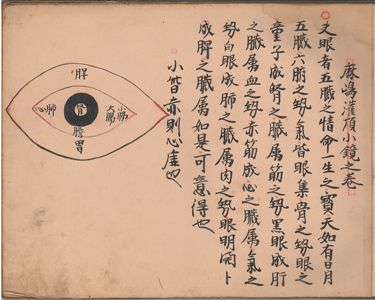 麻嶋灌頂小鏡之巻
夫眼者五臓之精命一生之寳天如有日月
五臓六腑之㔟氣皆眼集骨之㔟眼之
童子成腎之臓属筋之㔟黒眼成肝
之臓属血之㔟赤筋成心之臓属氣之
㔟白眼成肺之臓属肉之㔟眼明閇ト
成脾之臓属如是可意得也
小皆赤則心虚也
脾
小腸
大腸
腎
肺
心
膽
胃